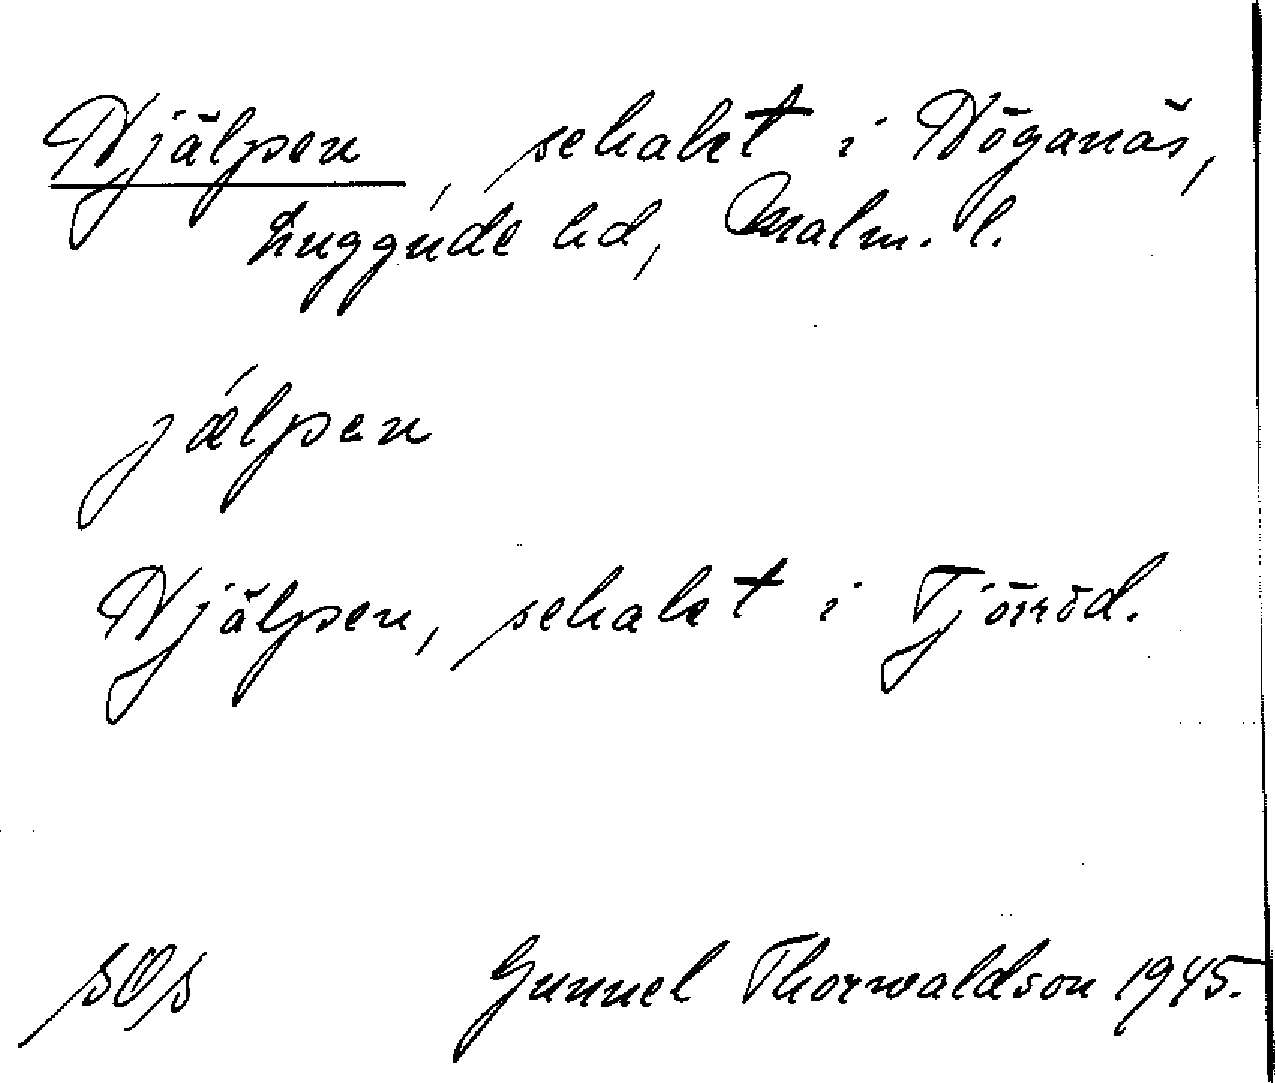 Hjälpen, schakt i Höganäs,
Luggude hd, Malm. l.
jǽlpen
Hjälpen, schakt i Tjörröd.
Gunnel Thorwaldson 1945.